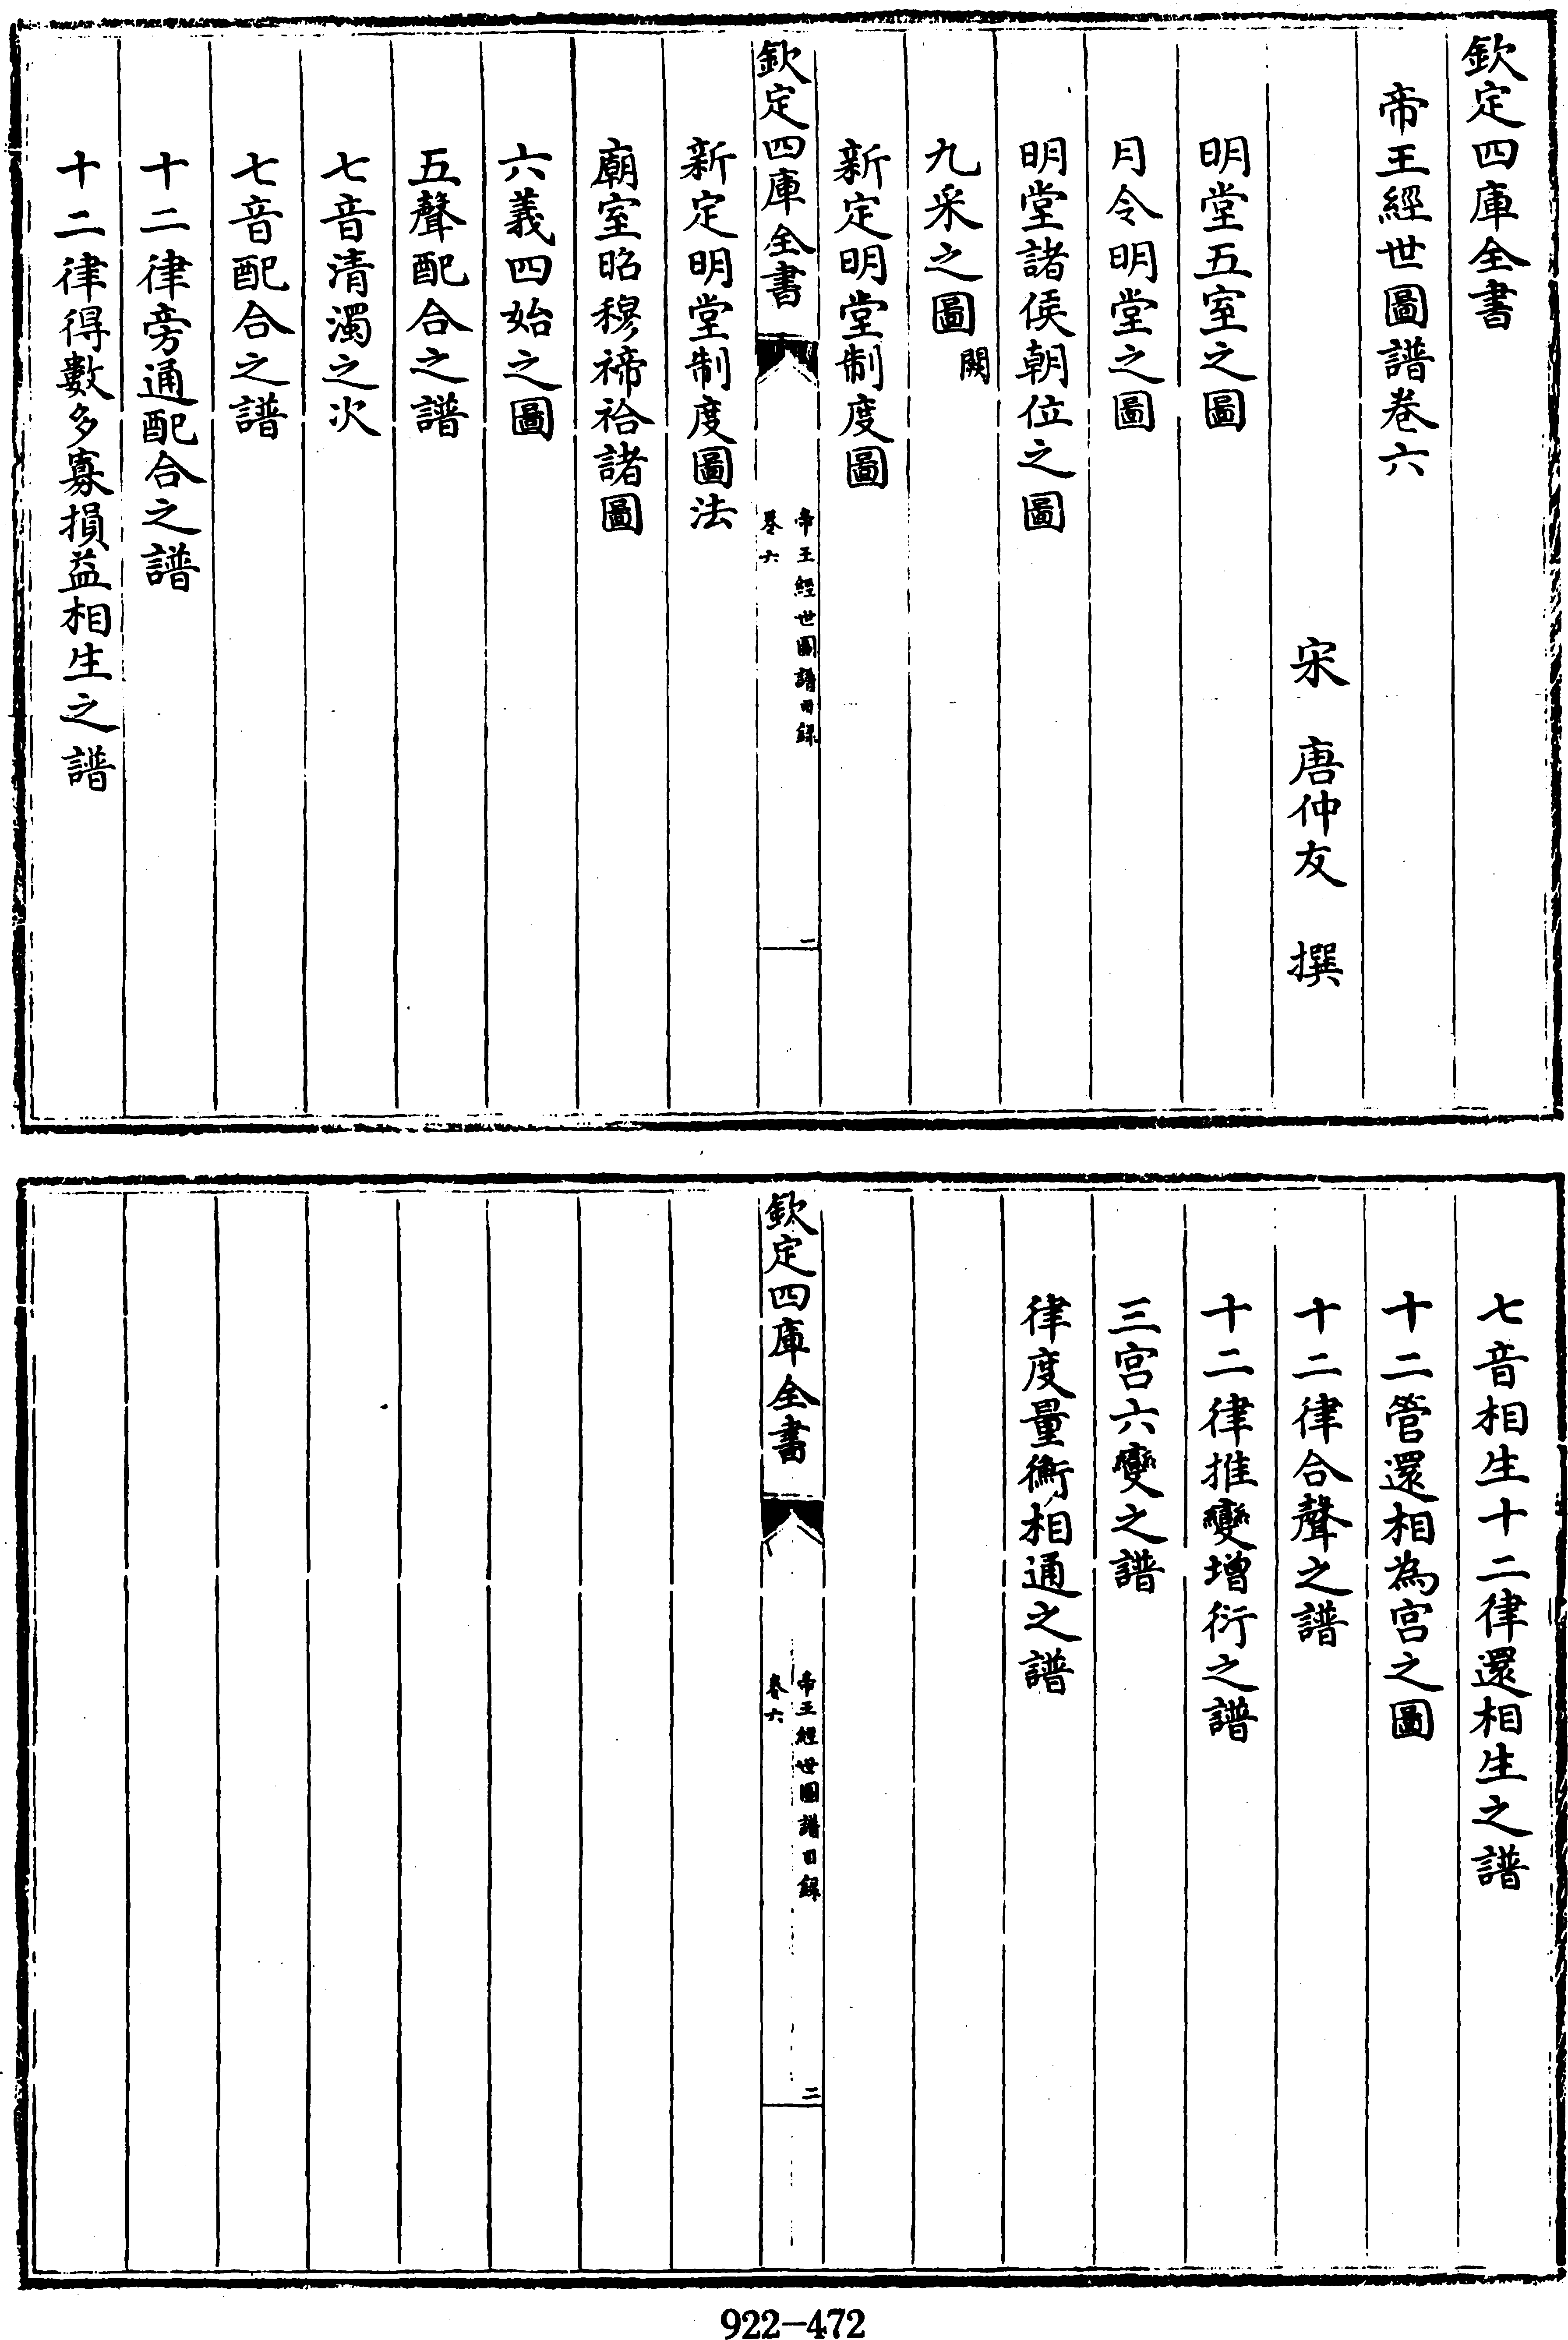 欽定四庫全書
帝王經世圖譜卷六
宋　唐仲友　撰
明堂五室之圖
月令明堂之圖
明堂諸侯朝位之圖
九采之圖闕
新定明堂制度圖
欽定四庫全書
帝王經世圖譜目錄
卷六
一
新定明堂制度圖法
廟室昭穆禘祫諸圖
六義四始之圖
五聲配合之譜
七音清濁之次
七音配合之譜
十二律旁通配合之譜
十二律得數多寡損益相生之譜
七音相生十二律還相生之譜
十二管還相為宮之圖
十二律合聲之譜
十二律推變增衍之譜
三宮六變之譜
律度量衡相通之譜
欽定四庫全書
帝王經世圖譜目錄
卷六
二
922-472